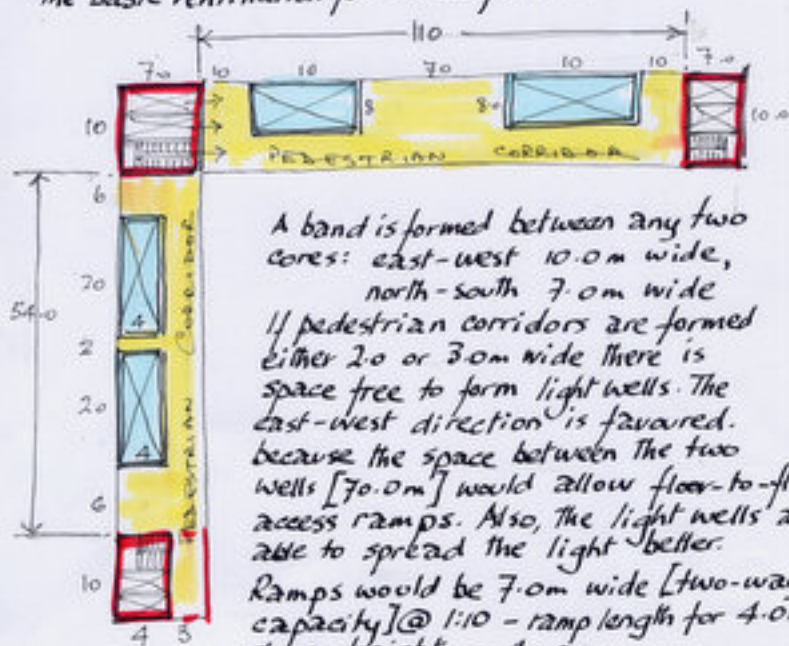 the basic ventilation
110
7.0 10 10 70 10 10 7.0
10 8 8.0 10.0
PEDESTRIAN CORRIDOR
6
A band is formed between any two
cores: east-west 10.0m wide,
north-south 7.0m wide
If pedestrian corridors are formed
either 2.0 or 3.0m wide there is
space free to form light wells. The
east-west direction is favoured.
because the space between the two
wells [70.0m] would allow floor-to-fl
access ramps. Also, the light wells a
able to spread the light better.
Ramps would be 7.0m wide [two-way
capacity] @ 1:10 - ramp length for 4.0
54.0
20
4
2
20
4
6
PEDESTRIAN CORRIDOR
10
4 3